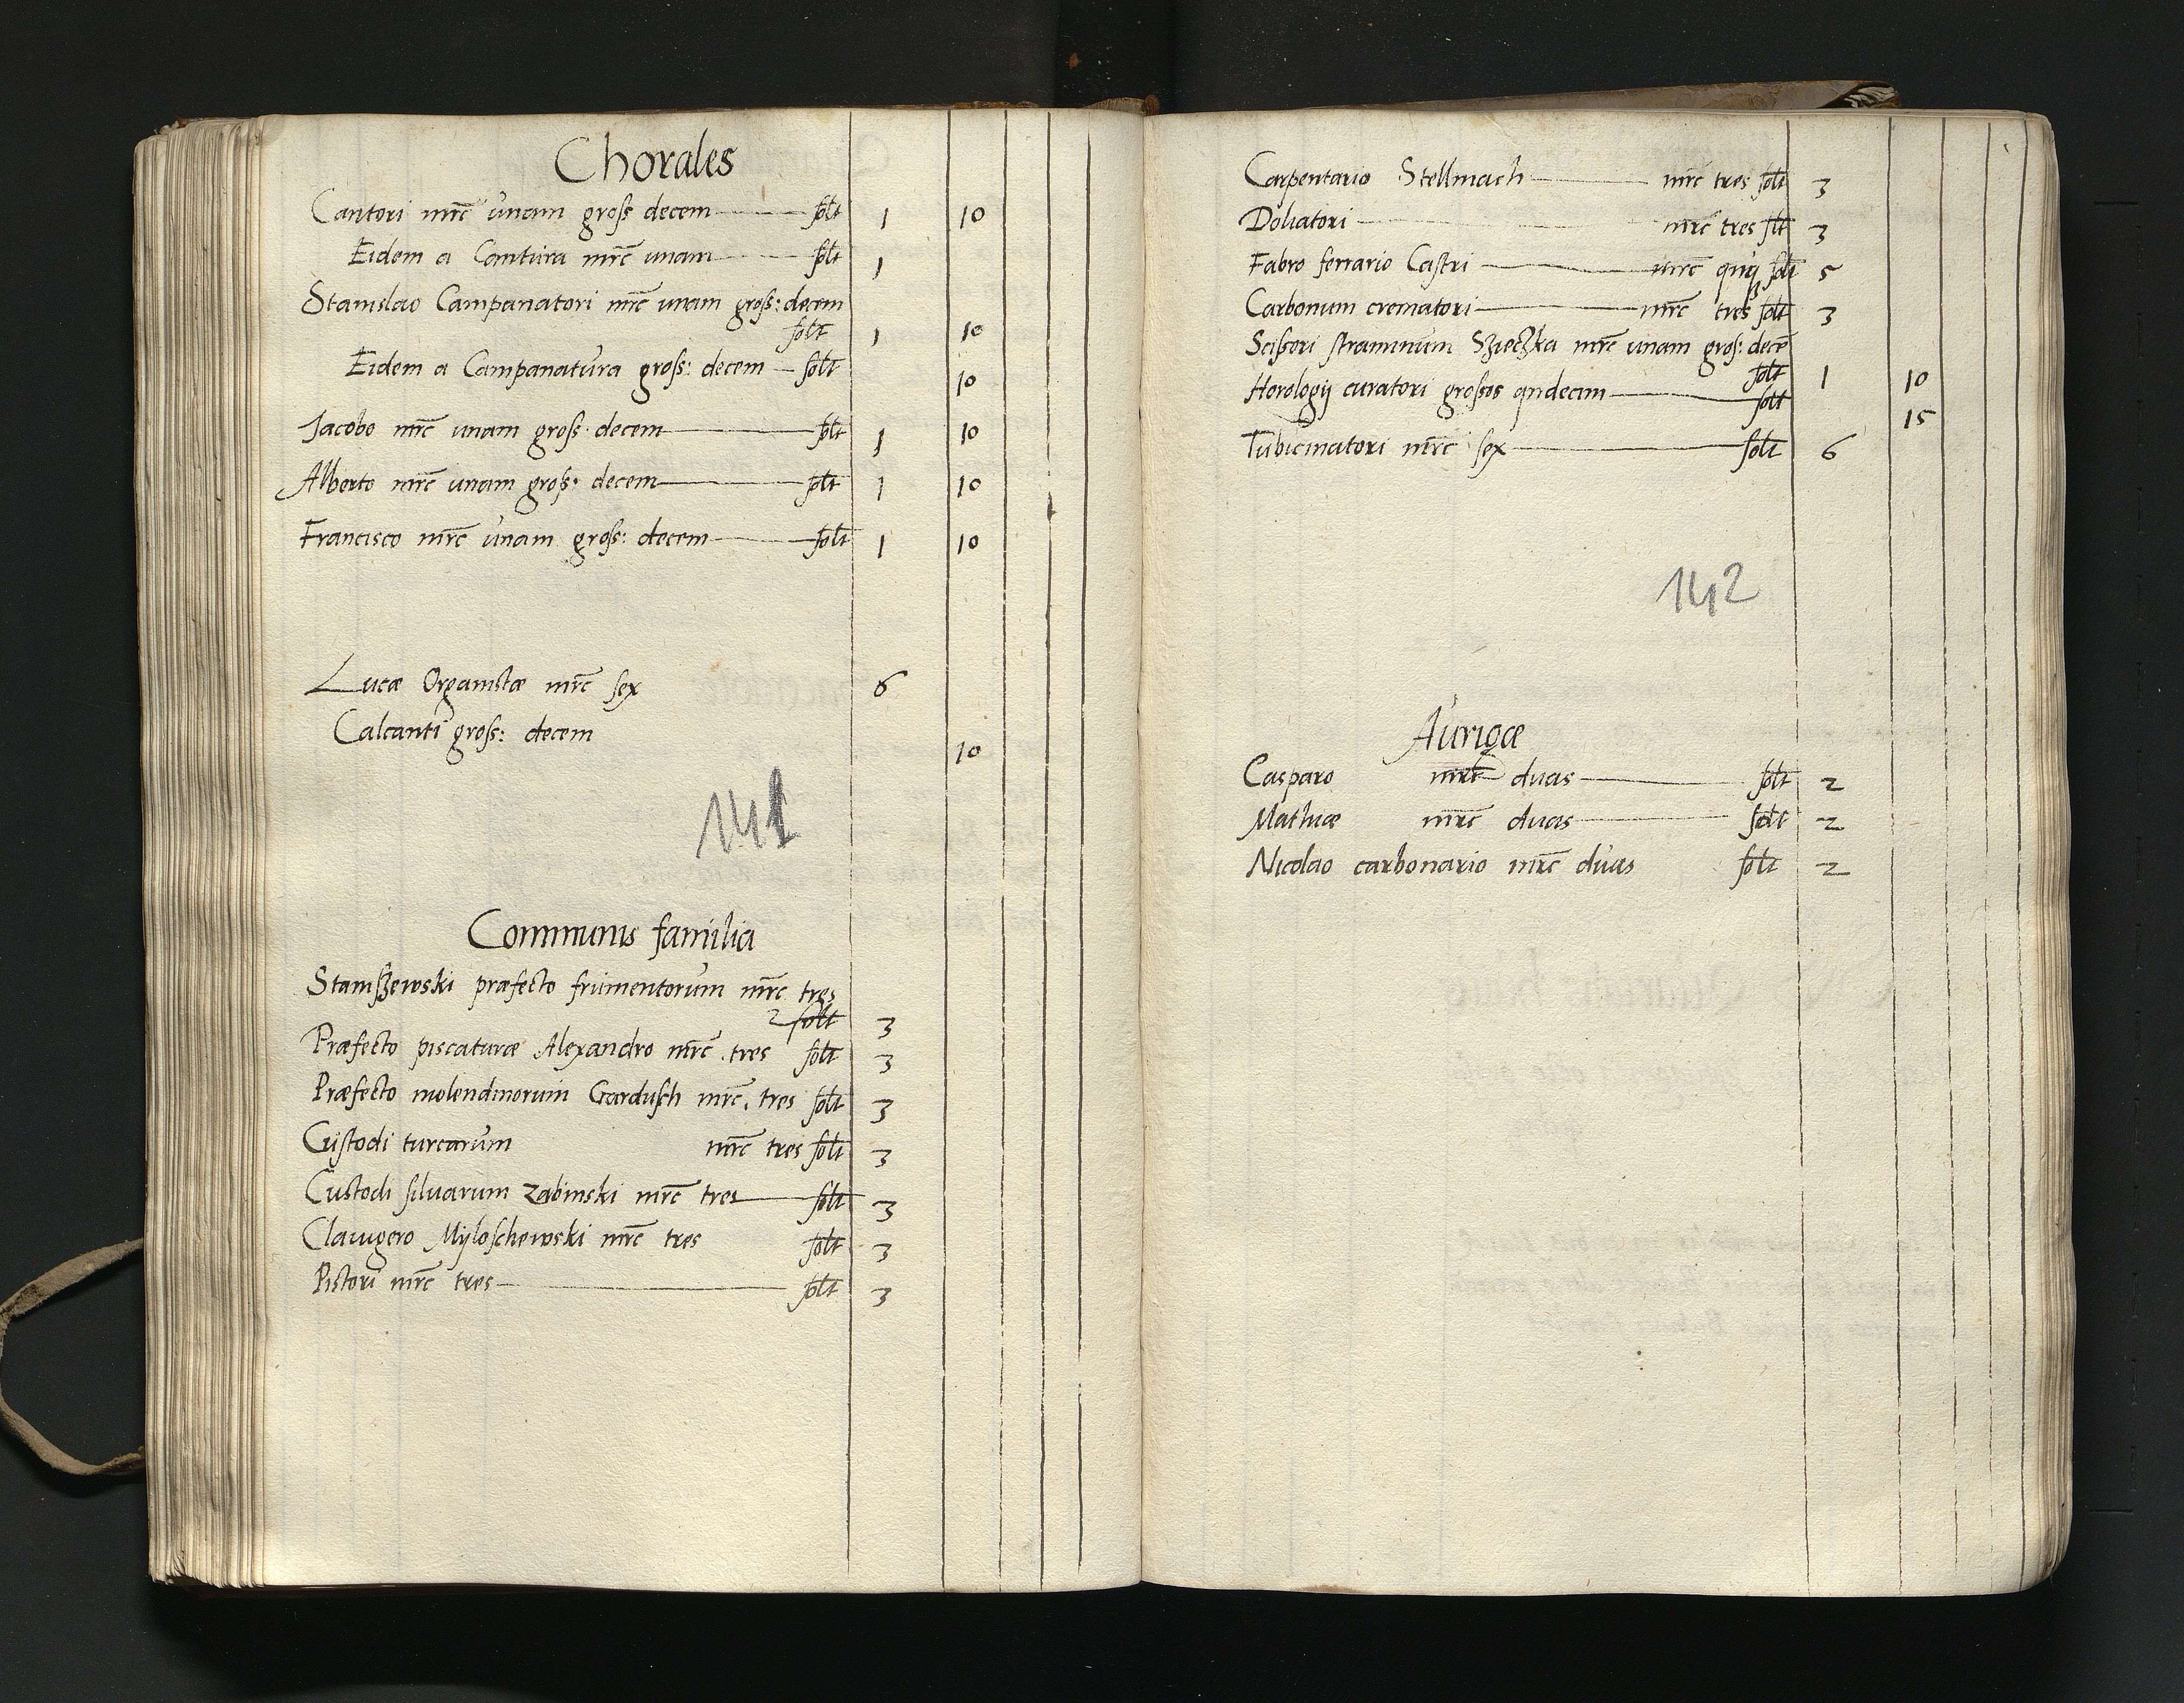 Chorales
Cantori mrc unam gross decem solt 1 10
Eidem a Cantura mrc unam solt 1
Stanislao Campanatori mrc unam gross: decem
solt 1 10
Eidem a Campanatura gross: decem solt 10
Jacobo mrc unam gross decem solt 1 10
Alberto mrc unam gross: decem solt 1 10
Francisco mrc unam gross: decem solt 1 10
Lucæ Organistæ mrc sex 6
Calcanti gross: decem 10
141
Communis familia
Stanißewski præfecto frumentorum mrc tres
solt 3
Præfecto piscaturæ Alexandro mrc tres solt 3
Præfecto molendinorum Gardusch mrc. tres solt 3
Custodi turcarum mrc tres solt 3
Custodi silvarum Zabinski mrc tres solt 3
Clavigero Myloschewski mrc tres solt 3
Pistori mrc tres solt 3
Carpentario Stellmach mrc tres solt 3
Doliatori mrc tres slt 3
Fabro ferrario Castri mrc quinq solt 5
Carbonum crematori mrc tres solt 3
Scissori straminum Szieczka mrc unam gros: dece
solt 1 10
Horologij curatori grossos qndecim solt 15
Tubicinatori mrc sex solt 6
142
Aurigæ
Casparo mrc duas solt 2
Mathiæ mrc duas solt 2
Nicolao carbonario mrc duas solt 2